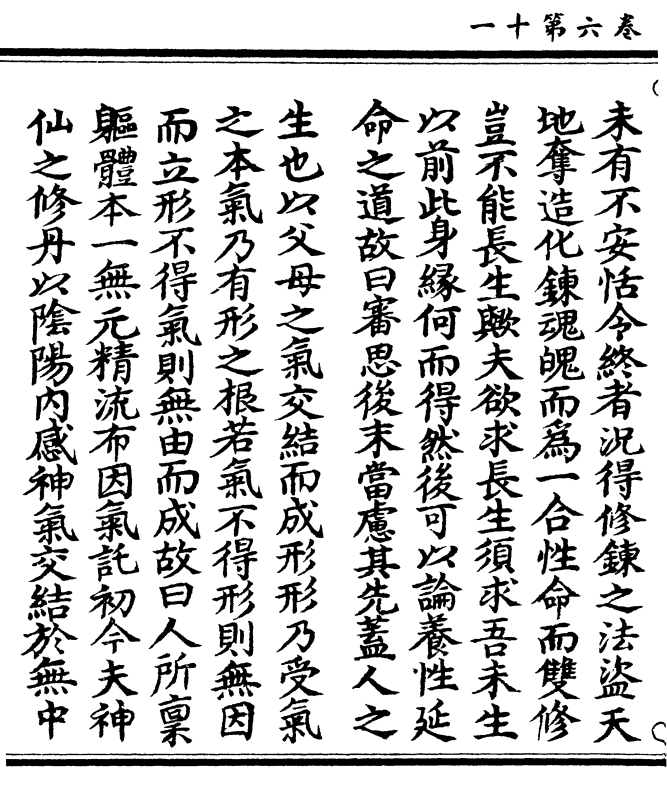 卷六第十一
未有不安恬令終者況得修鍊之法盜天
地奪造化鍊魂魄而為一合性命而雙修
豈不能長生歟夫欲求長生須求吾未生
以前此身緣何而得然後可以論養性延
命之道故曰審思後末當慮其先蓋人之
生也以父母之氣交結而成形形乃受氣
之本氣乃有形之根若氣不得形則無因
而立形不得氣則無由而成故曰人所稟
軀體本一無元精流布因氣託初今夫神
仙之修丹以陰陽內感神氣交結於無中